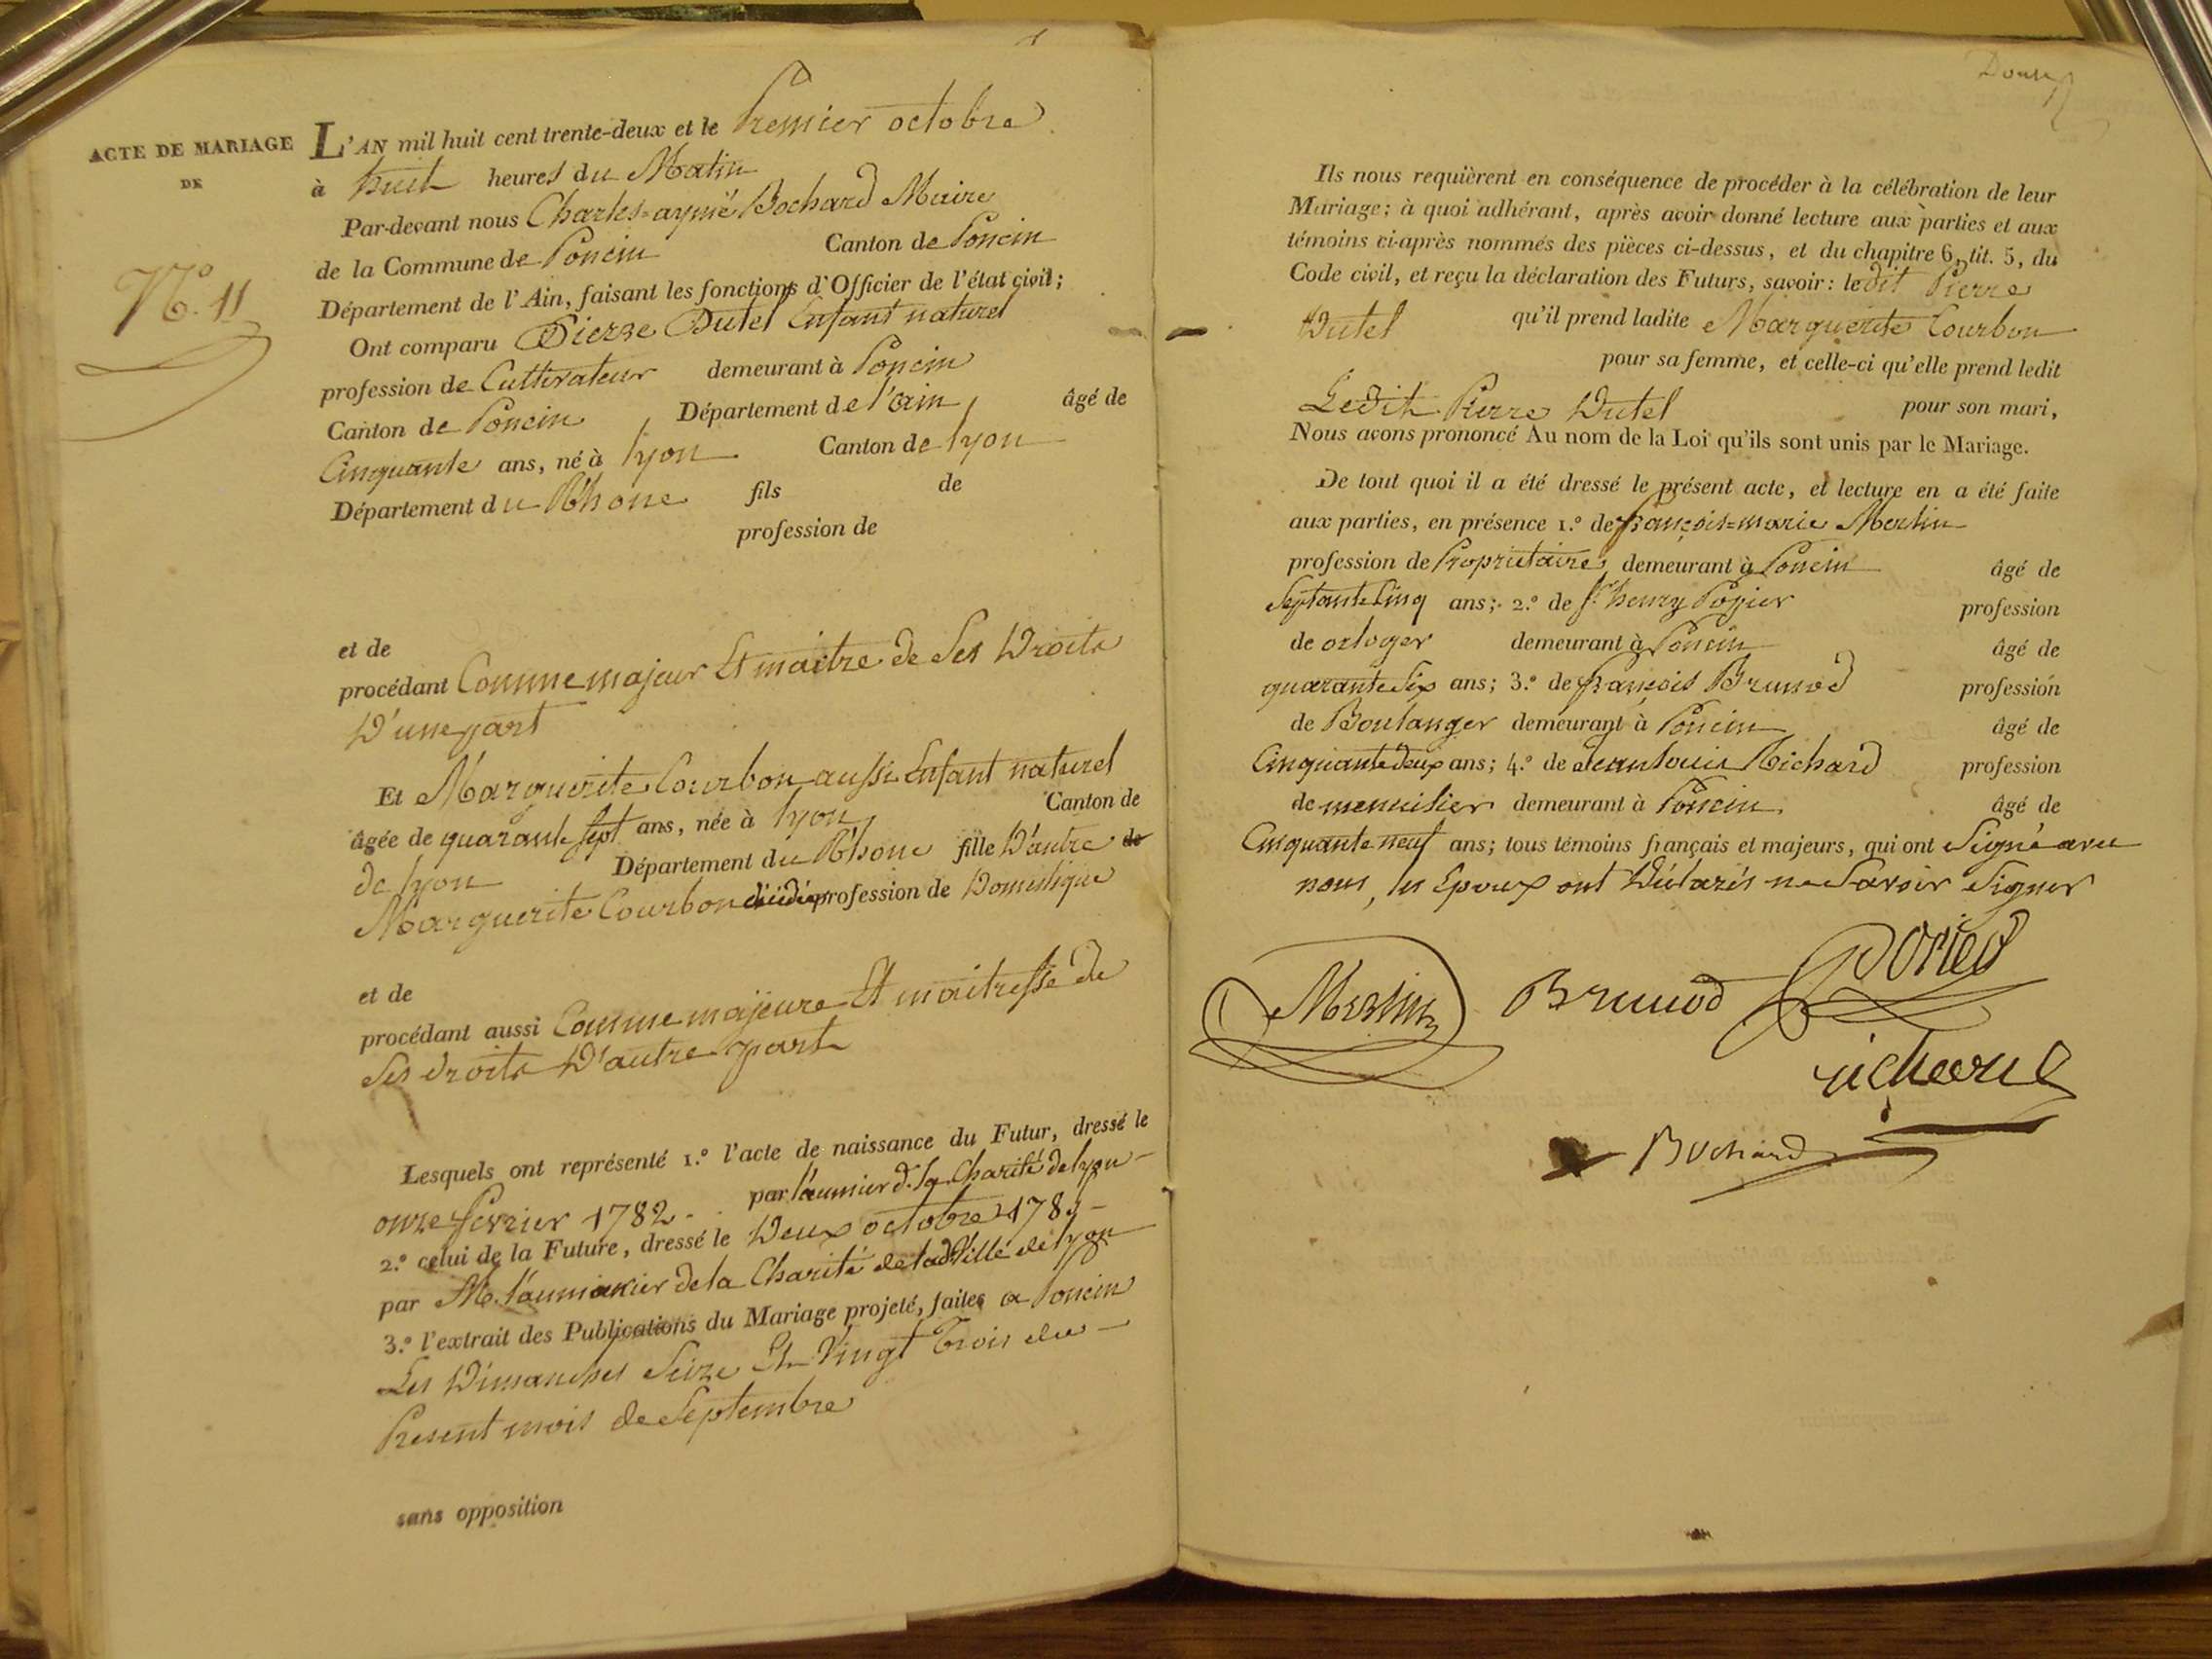 ACTE DE MARIAGE
DE
N.o 11
L'AN mil huit cent trente-deux et le Premier octobre
à huit heures du Matin
Par-devant nous Charles=aymé Bochard Maire
de la Commune de Poncin Canton de Poncin
Département de l'Ain, faisant les fonctions d'Officier de l'état civil;
Ont comparu Pierre Dutel Enfant naturel
profession de Cultivateur demeurant à Poncin
Canton de Poncin Département de l'ain âgé de
Cinquante ans, né à lyon Canton de lyon
Département du Rhone fils de
profession de
et de
procédant Comme majeur Et maitre de Ses Droits
D'une part
Et Marguerite Courbon aussi Enfant naturel
âgée de quarante sept ans, née à lyon Canton de
de lyon Département du Rhone fille D'autre de
Marguerite Courbon profession de Domestique
et de
procédant aussi Comme majeure Et maitresse de
Ses droits D'autre part
Lesquels ont représenté 1.o l'acte de naissance du Futur, dressé le
onze fevrier 1782 - par l'aumier d. la Charité de lyon -
2.o celui de la Future, dressé le Deux octobre -
par M. l'aumonier de la Charité de ladt Ville de lyon
3.o l'extrait des Publications du Mariage projeté, faites a Poncin
Les Dimanches Seize Et Vingt Trois du -
Present mois de Septembre
sans opposition
Ils nous requièrent en conséquence de procéder à la célébration de leur
Mariage; à quoi adhérant, après avoir donné lecture aux parties et aux
témoins ci-après nommés des pièces ci-dessus, et du chapitre 6, tit. 5, du
Code civil, et reçu la déclaration des Futurs, savoir: ledit Pierre
Dutel qu'il prend ladite Marguerite Courbon
pour sa femme, et celle-ci qu'elle prend ledit
Ledit Pierre Dutel pour son mari,
Nous avons prononcé Au nom de la Loi qu'ils sont unis par le Mariage.
De tout quoi il a été dressé le présent acte, et lecture en a été faite
aux parties, en présence 1.o de françois=marie Merlin
profession de Propriétaire demeurant à Poncin âgé de
Septante Cinq ans; 2.o de henry profession
de orloger demeurant à Poncin âgé de
quarante Six ans; 3.o de françois Brunod profession
de Boulanger demeurant à Poncin âgé de
Cinquante deux ans; 4.o de Jean louis Richard profession
de menuisier demeurant à Poncin âgé de
Cinquante neuf ans; tous témoins français et majeurs, qui ont Signé avec
nous, les Epoux ont Déclarés ne Savoir Signer
Merlin Brunod
richard
Bochard